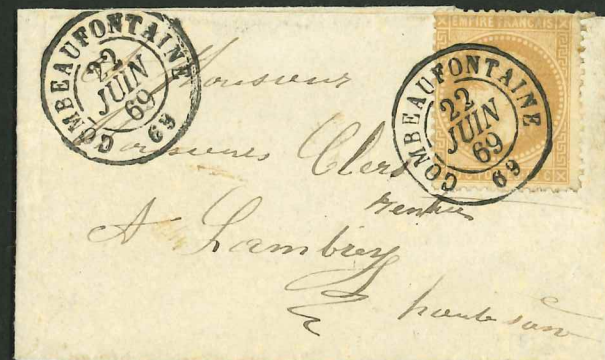 COMBEAUFONTAINE
22
JUIN
69
69
EMPIRE FRANÇAIS
COMBEAUFONTAINE
22
JUIN
69
69
Monsieur
Clerc
rentier
A Lambrey
haute saône